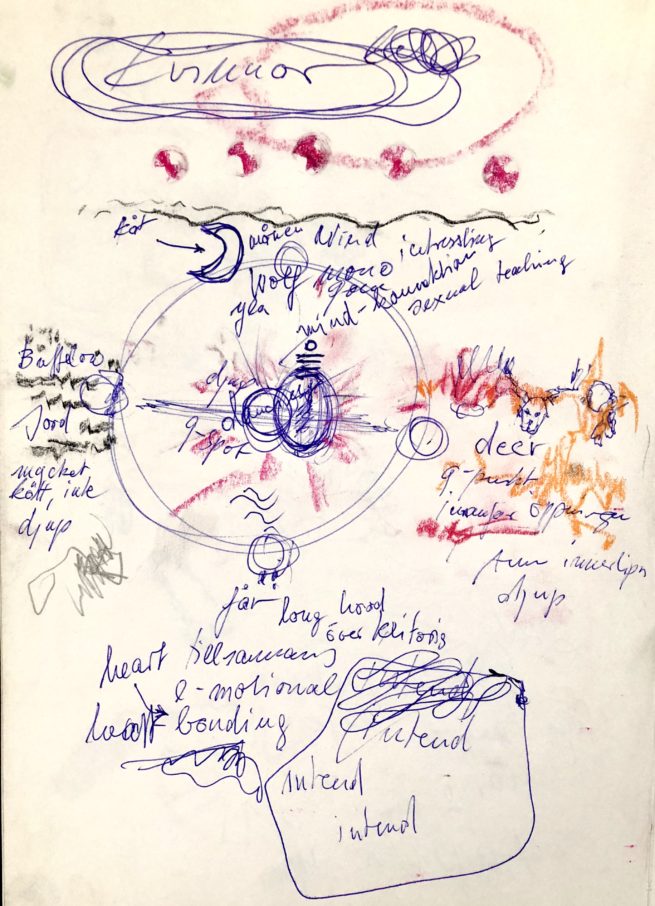 Kvinnor
kåt
månen Wind
wolf
intressting
mind-konnoktion
sexual teaching
Buffelow
Jord
mycket
kött, inte
djup
djup
g-spot
deer
g-punkt
öppningen
tunn innerlips
djup
får
long hood
över klitoris
heart tillsammans
e-motional
bonding
intend
intend
intend